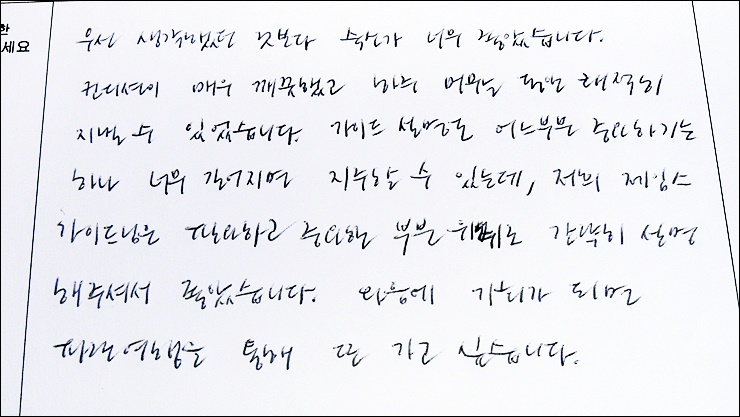 한
세요
우선 생각했던 것보다 숙소가 너무 좋았습니다.
컨디션이 매우 깨끗했고 하루 머무는 동안 쾌적히
지낼 수 있었습니다. 가이드 설명도 어느부분 중요하기는
하나 너무 길어지면 지루할 수 있는데, 저희 제임스
가이드님은 필요하고 중요한 부분 위주로 간략히 설명
해주셔서 좋았습니다. 다음에 기회가 되면
파란여행을 통해 또 가고 싶습니다.